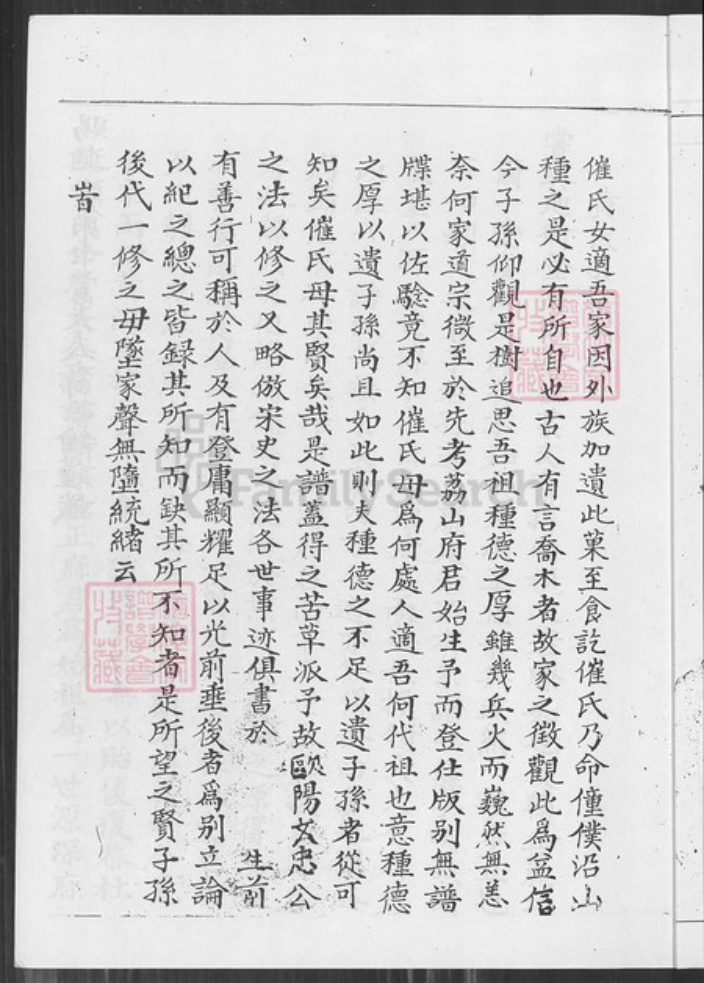 催氏女適吾家因外族加遺此菓至食訖催氏乃命僮僕沿山
種之是必有所自也古人有言喬木者故家之徵觀此為益信
今子孫仰觀是樹追思吾祖種德之厚雖幾兵火而巍然無恙
奈何家道宗微至於先考荔山府君始生予而登仕版別無譜
牒堪以佐驗竟不知催氏母為何處人適吾何代祖也意種德
之厚以遺子孫尚且如此則夫種德之不足以遺子孫者從可
知矣催氏母其賢矣哉是譜蓋得之苦草派予故歐陽文忠公
之法以修之又略倣宋史之法各世事迹俱書於 生前
有善行可稱於人及有登庸顯耀足以光前垂後者為別立論
以紀之總之皆録其所知而缺其所不知者是所望之賢子孫
後代一修之毋墜家聲無墮統緒云
旹
FamilySearch